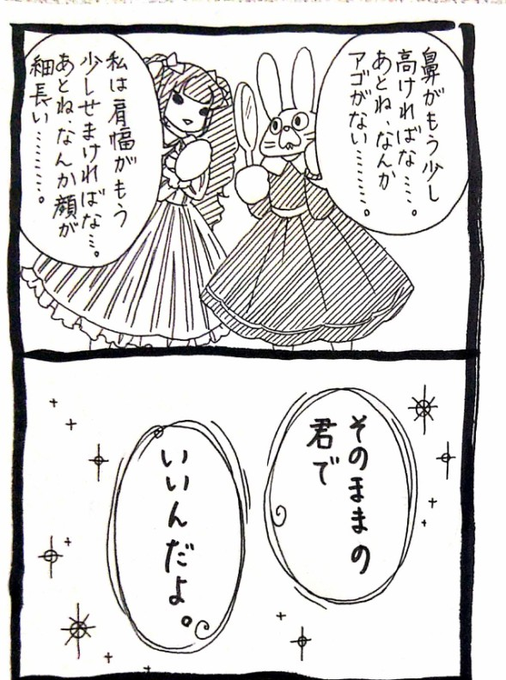 鼻がもう少し
高ければな…。
あとね、なんか
アゴがない……。
私は肩幅がもう
少しせまければな…。
あとね、なんか顔が
細長い……。
そのままの
君で
いいんだよ。